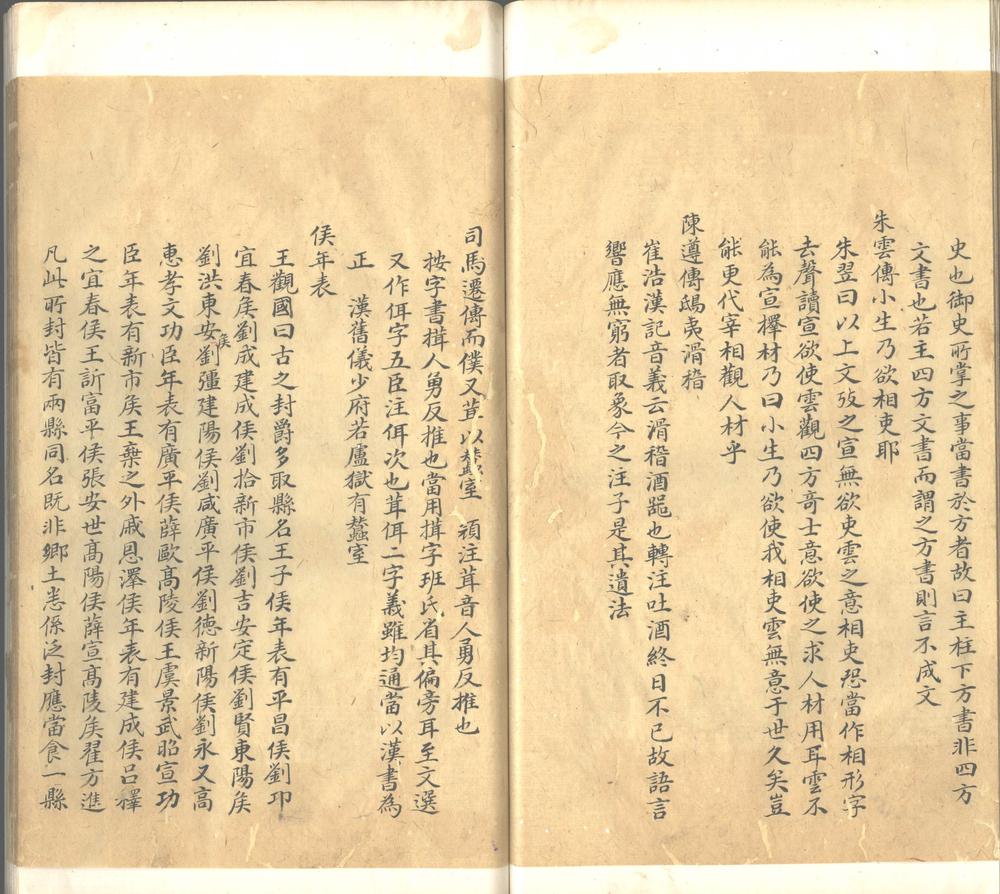 史也御史所掌之事當書於方者故曰主柱下方書非四方
文書也若主四方文書而謂之方書則言不成文
朱雲傳小生乃欲相吏耶
朱翌曰以上文攷之宣無欲吏雲之意相吏恐當作相形字
去聲讀宣欲使雲觀四方奇士意欲使之求人材用耳雲不
能為宣擇材乃曰小生乃欲使我相吏雲無意于世久矣豈
能更代宰相觀人材乎
陳遵傳鴟夷滑稽
崔浩漢記音義云滑稽酒噐也轉注吐酒終日不已故語言
響應無窮者取象今之注子是其遺法
司馬遷傳而僕又茸以蠶室 顔注茸音人勇反推也
按字書搑人勇反推也當用搑字班氏省其偏旁耳至文選
又作佴字五臣注佴次也茸佴二字義雖均通當以漢書為
正 漢舊儀少府若盧獄有蠶室
侯年表
王觀國曰古之封爵多取縣名王子侯年表有平昌侯劉卬
宜春矦劉成建成侯劉拾新市侯劉吉安定侯劉賢東陽矦
劉洪東安侯劉彊建陽侯劉咸廣平侯劉德新陽侯劉永又高
惠孝文功臣年表有廣平侯薛歐高陵侯王虞景武昭宣功
臣年表有新市矦王棄之外戚恩澤侯年表有建成侯呂釋
之宜春侯王訢富平侯張安世高陽侯薛宣高陵矦翟方進
凡此所封皆有兩縣同名既非鄉土悉係泛封應當食一縣